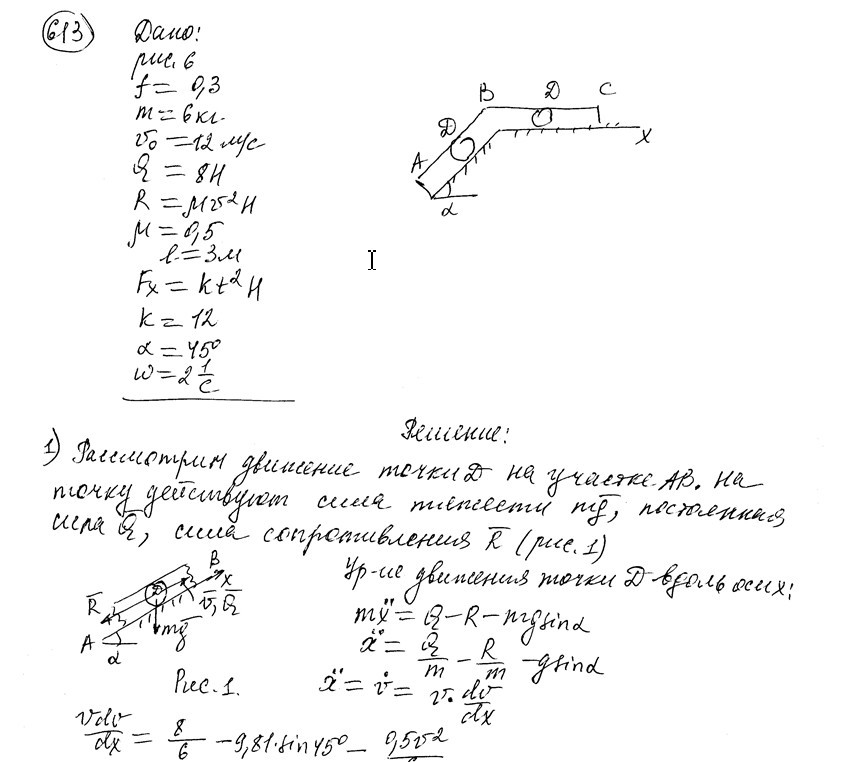 613
Дано:
рис. 6
f = 0,3
m = 6 кг.
v₀ = 12 м/с
Q = 8Н
R = μv² Н
μ = 0,5
l = 3м
Fx = kt² Н
k = 12
α = 45°
ω = 2 1/с
A D B D C X
α
Решение:
1) Рассмотрим движение точки D на участке AB. На
точку действуют сила тяжести mg̅, постоянная
сила Q̅, сила сопротивления R̅ (рис. 1)
R̅ A α mg̅ B x v̅, Q̅
Рис. 1.
Ур-ие движения точки D вдоль оси x:
mẍ = Q - R - mg sinα
ẍ = Q/m - R/m - g sinα
ẍ = v̇ = v · dv/dx
vdv/dx = 8/6 - 9,81·sin45° - 0,5v²